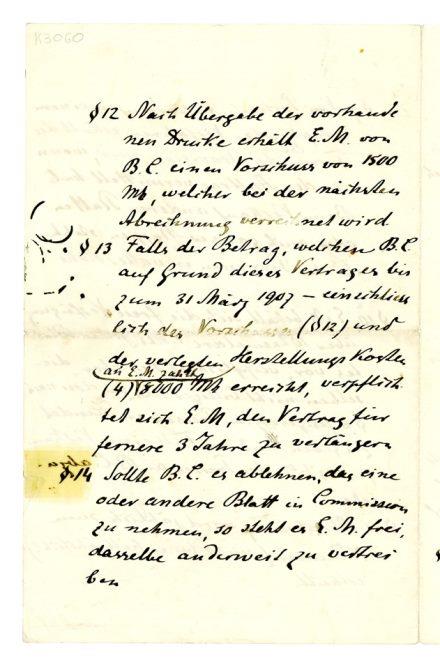 K3060
§12 Nach Übergabe der vorhande
nen Drucke erhält E.M. von
B.C. einen Vorschuss von 1500
Mk, welcher bei der nächsten
Abrechnung verrechnet wird
§13 Falls der Betrag, welchen B.C.
auf Grund dieses Vertrages bis
zum 31 März 1907 – einschliess
lich des Vorschusses (§12) und
der verlegten Herstellungs Kosten
an E.M. zahlt,
(4) 8000 Mk erreicht, verpflich
tet sich E.M, den Vertrag für
fernere 3 Jahre zu verlängern
§.14 Sollte B.C. es ablehnen, das eine
oder andere Blatt in Commission
zu nehmen, so steht es E.M. frei,
dasselbe anderweit zu vertrei
ben